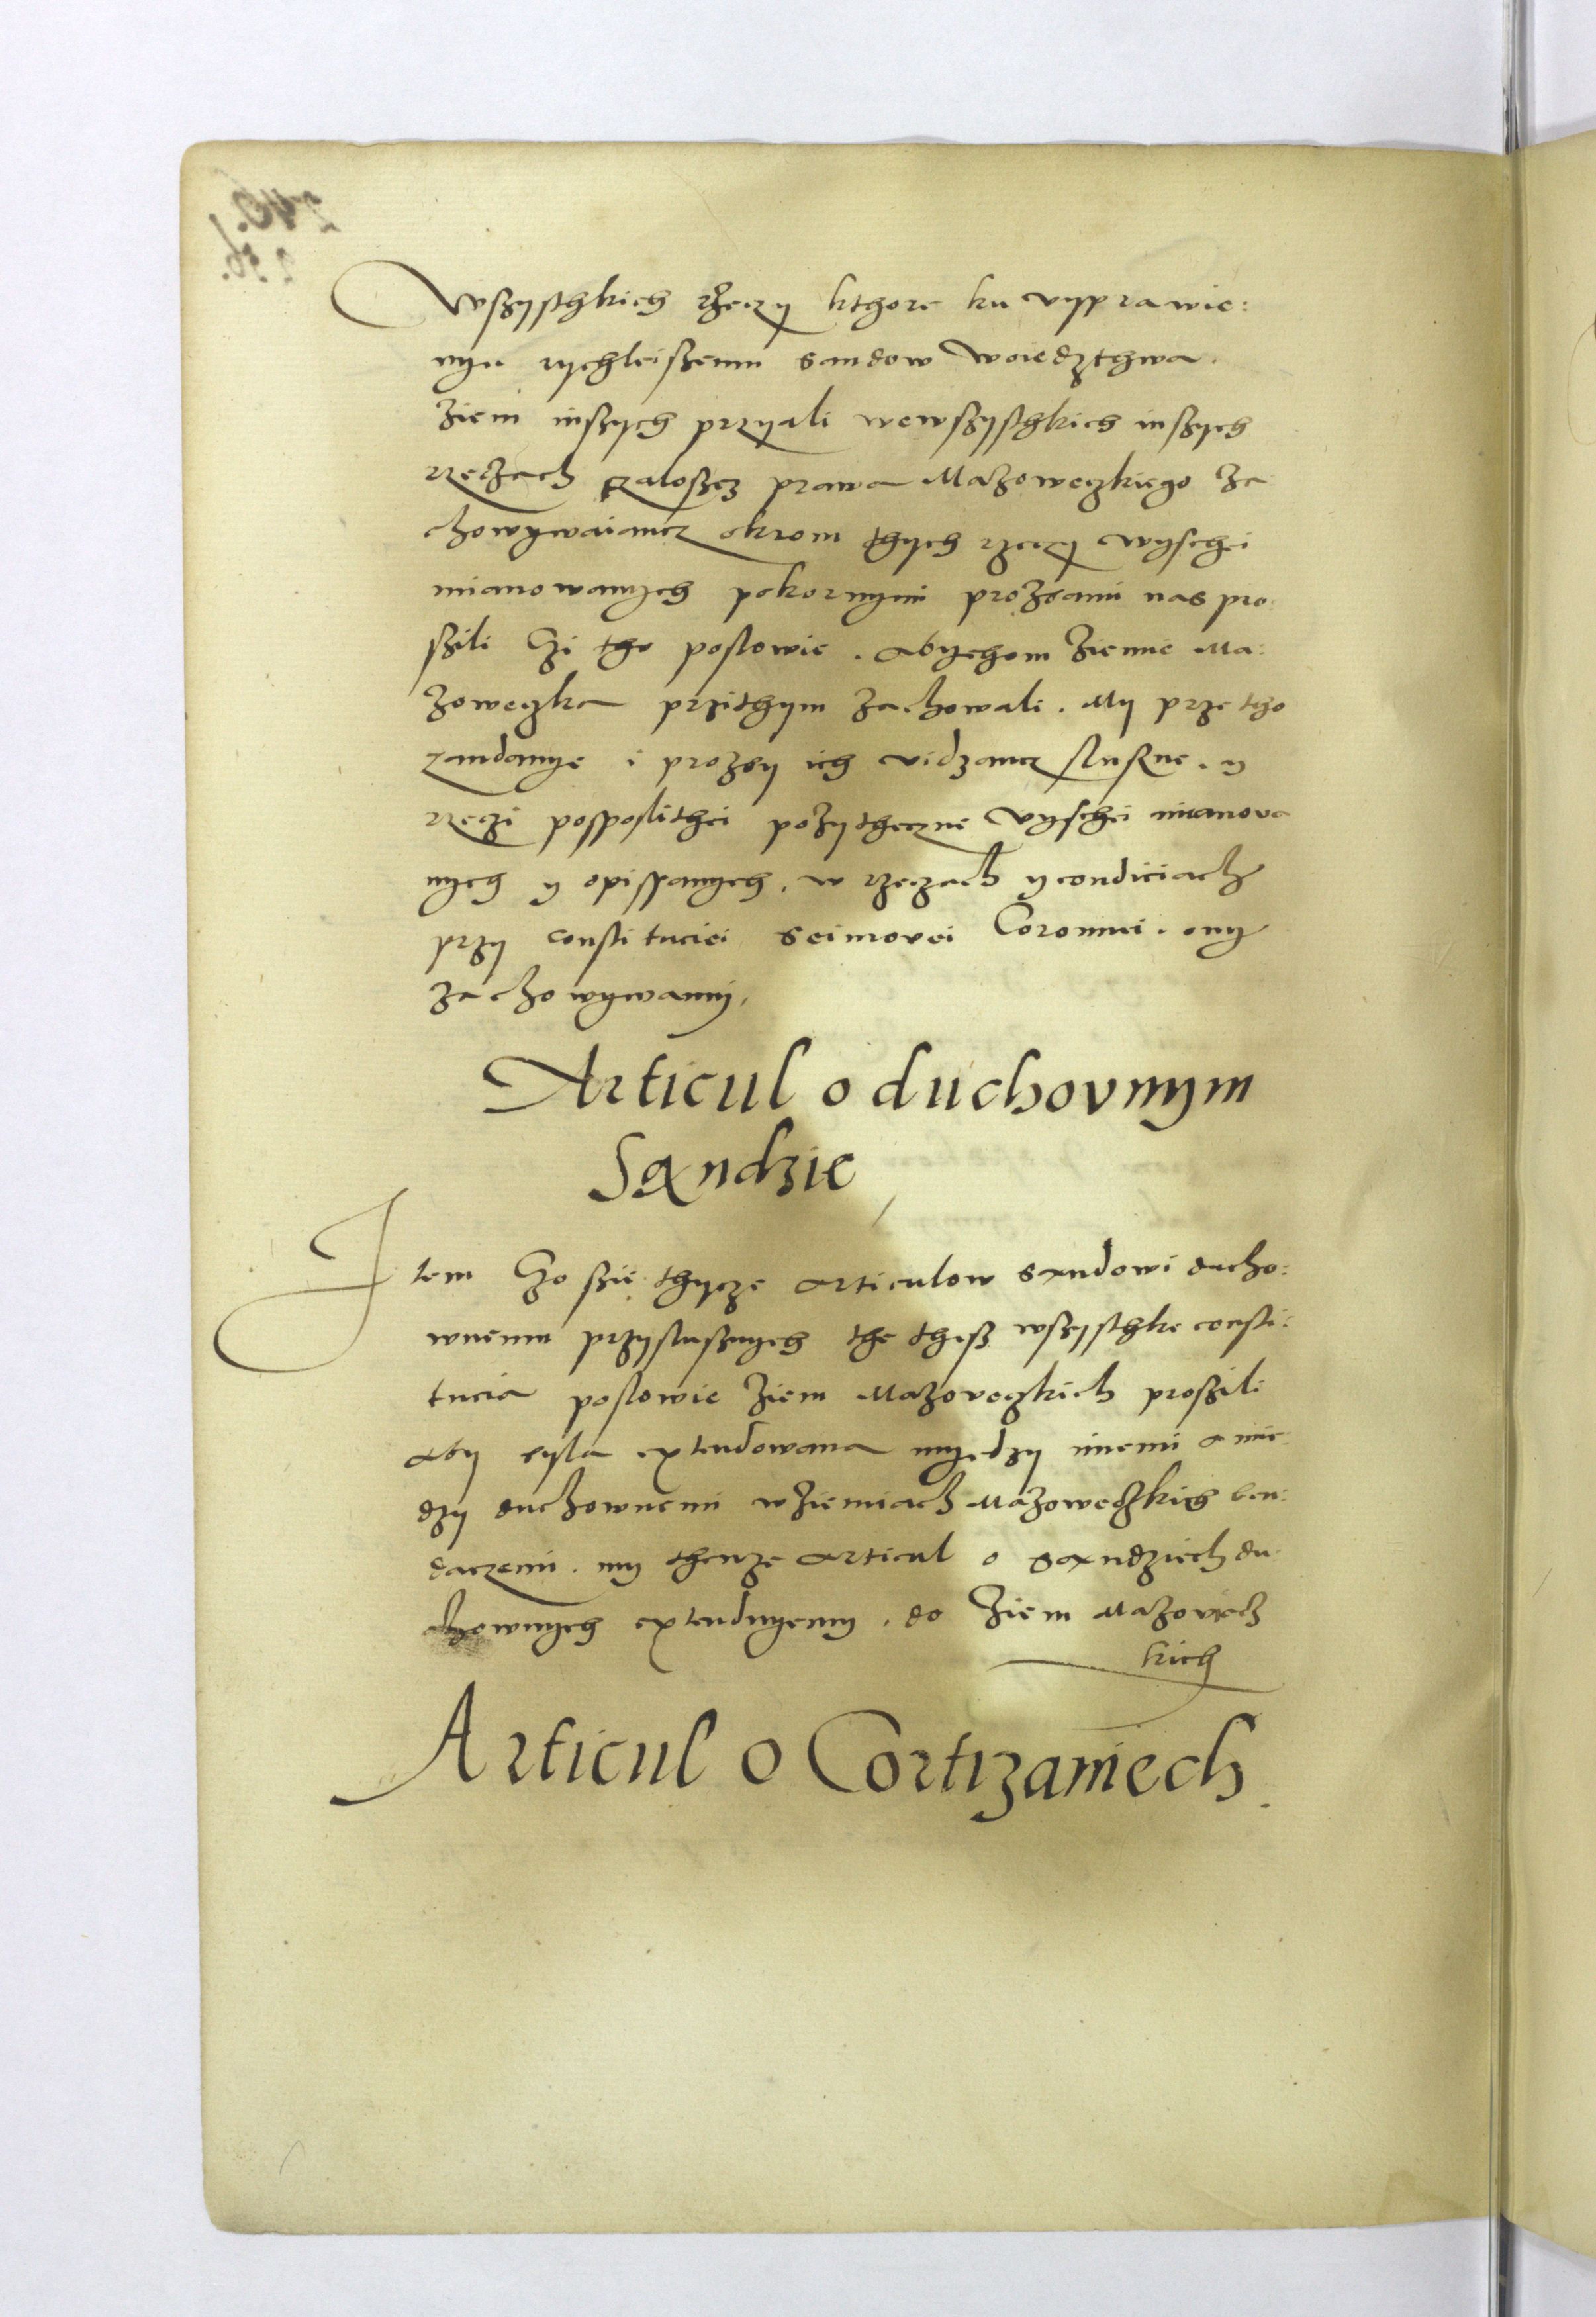 Wszysthkich rzeczÿ kthore ku vyprawie:
nyu rychleiszemu sandow woiedzthwa.
Ziem inszych przÿali wewszysthkich inszych
rzeczach prawa Mazoweczkiego Za
chowÿwaiancz okrom thych rzeczÿ wyschei
mianowanych pokornymi prozbami nas pro
szili Czi tho poslowie. Abychom Ziemie Ma:
Zoweczka przithym Zachowali. My prze tho
zandanye i prozby ich vidzancz sluszne. y
rzeczi posspolithei pozytheczne vyschei mianova
nych y opissanych. w rzeczach y condiciach
przy constituciei seimovei Coronnei. ony
Zachowywamy.
Articul o duchovnym
Sandzie
Item Czo szie thycze articulow sandowi ducho:
wnemu przyslusznych the thesz wszysthke consti:
tucia poslowie Ziem Mazoveczkich proszili
Aby byla extendowana myedzy niemi a mie:
dzy duchownemi w Ziemiach Mazoweczkich ben:
daczemi. my thenze articul o sandziech du
chownych extenduyemy. do Ziem Mazoviecz
kich
Articul o Cortizaniech.